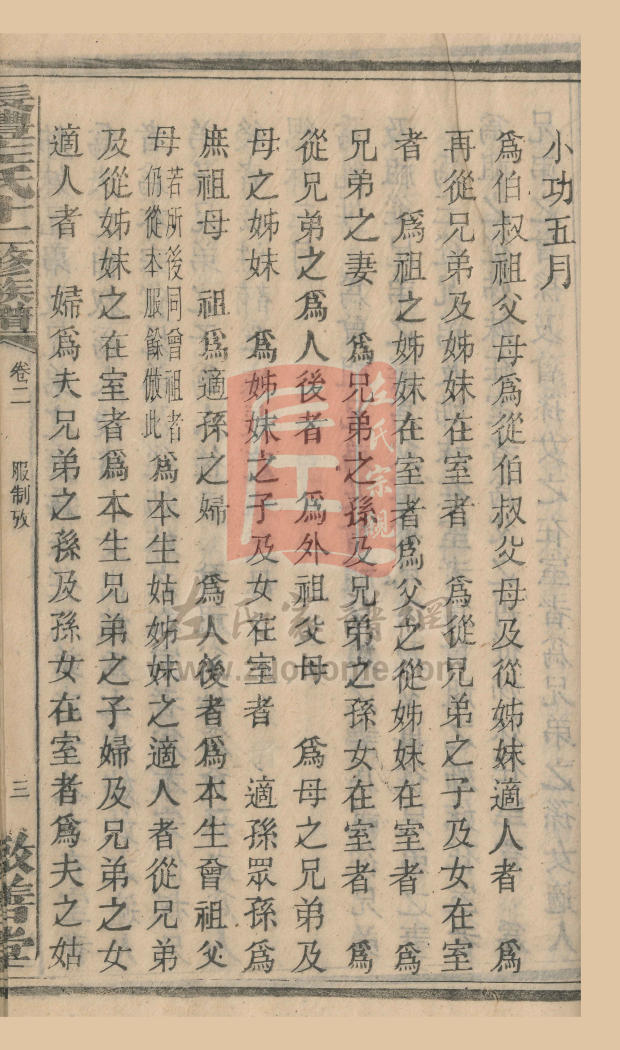 小功五月
爲伯叔祖父母爲從伯叔父母及從姊妹適人者　爲
再從兄弟及姊妹在室者　爲從兄弟之子及女在室
者　爲祖之姊妹在室者爲父之從姊妹在室者　爲
兄弟之妻　爲兄弟之孫及兄弟之孫女在室者　爲
從兄弟之爲人後者　爲外祖父母　爲母之兄弟及
母之姊妹　爲姊妹之子及女在室者　適孫眾孫爲
庶祖母　祖爲適孫之婦　爲人後者爲本生曾祖父
母若所後同曾祖者仍從本服餘倣此　爲本生姑姊妹之適人者從兄弟
及從姊妹之在室者爲本生兄弟之子婦及兄弟之女
適人者　婦爲夫兄弟之孫及孫女在室者爲夫之姑
長灃左氏十二修族譜
卷二
服制攷
三
敬善堂
左氏宗親
左氏家譜網